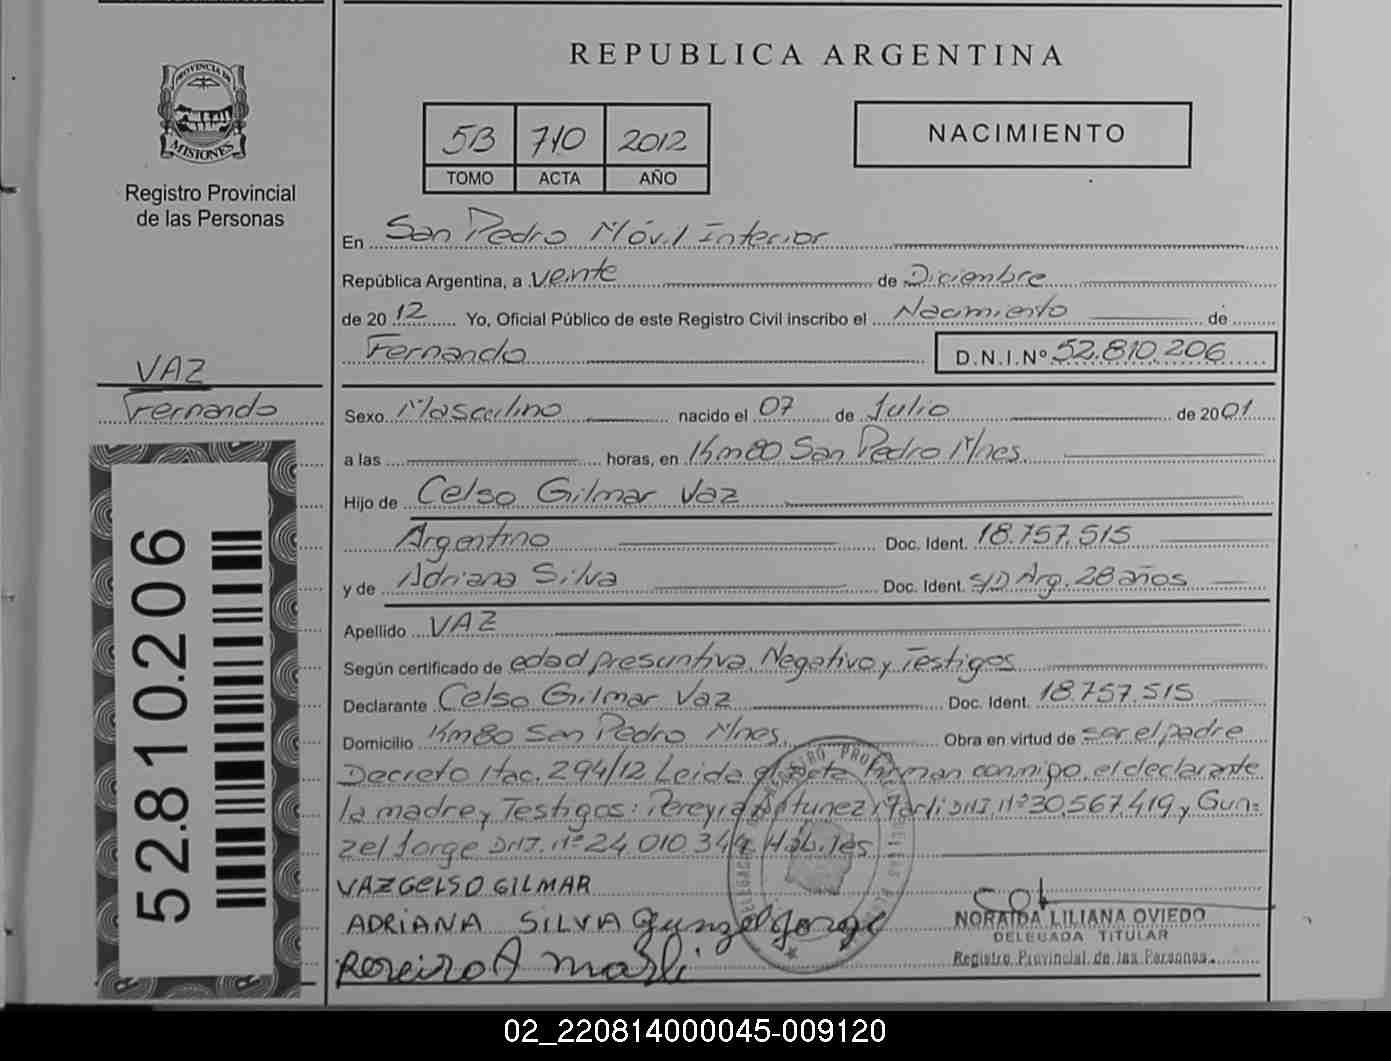 PROVINCIA DE
MISIONES
Registro Provincial
de las Personas
REPUBLICA ARGENTINA
5B 710 2012
TOMO ACTA AÑO
NACIMIENTO
En San Pedro Móvil Interior
República Argentina, a veinte de Diciembre
de 2012 Yo, Oficial Público de este Registro Civil inscribo el Nacimiento de
Fernando D.N.I.Nº 52.810.206
VAZ
Fernando
52.810.206
Sexo Masculino nacido el 07 de Julio de 2001
a las horas, en Km80 San Pedro Mnes.
Hijo de Celso Gilmar Vaz
Argentino Doc. Ident. 18.757.515
y de Adriana Silva Doc. Ident. S/D Arg. 28 años
Apellido VAZ
Según certificado de edad presuntiva, Negativo y Testigos
Declarante Celso Gilmar Vaz Doc. Ident. 18.757.515
Domicilio Km80 San Pedro Mnes. Obra en virtud de ser el padre
Decreto Nac. 294/12 Leida el acta firman conmigo, el declarante
la madre y Testigos: Pereyra Antunez Marli DNI. Nº 30.567.419 y Gun=
zel Jorge DNI. Nº 24.010.349 Hábiles
VAZ CELSO GILMAR
ADRIANA SILVA Gunzel Jorge
Pereira A Marli
NORAIDA LILIANA OVIEDO
DELEGADA TITULAR
Registro Provincial de las Personas
02_220814000045-009120